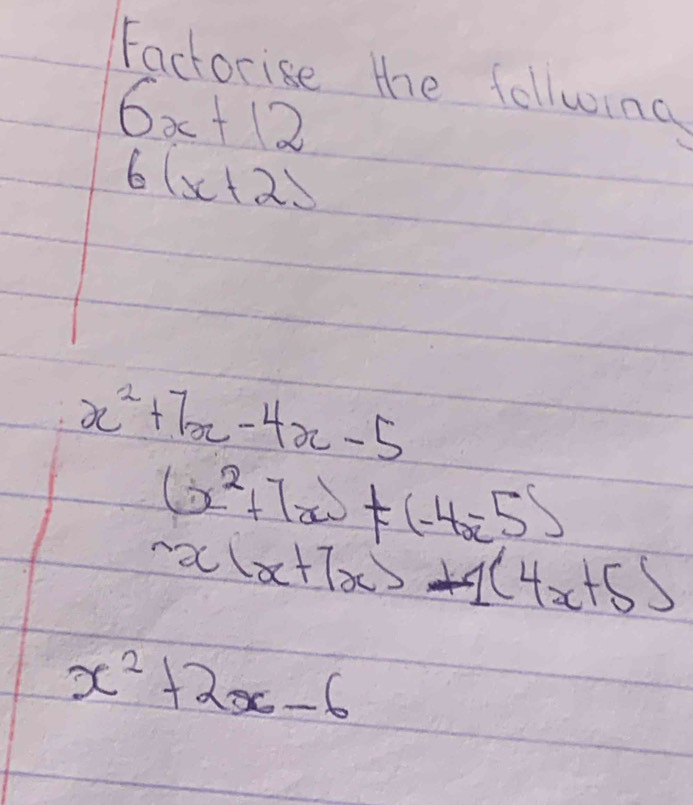 Factorise the following
6x+12
6(x+2)
x²+7x-4x-5
(x²+7x)+(-4x-5)
x(x+7x)-1(4x+5)
x²+2x-6